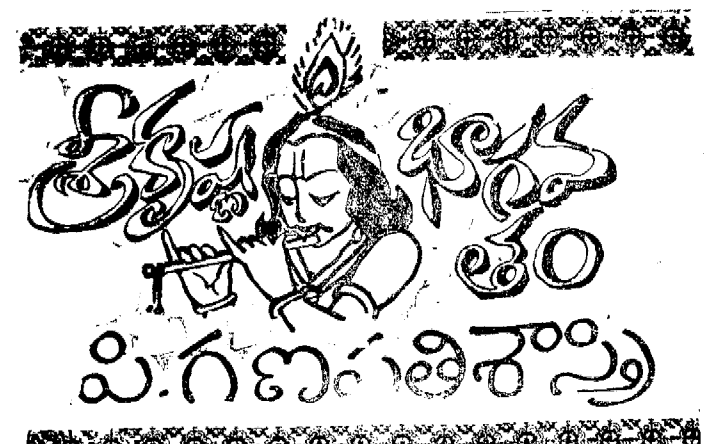 శ్రీకృష్ణ భాగవ
తం
పి.గణపతిశాస్త్రి